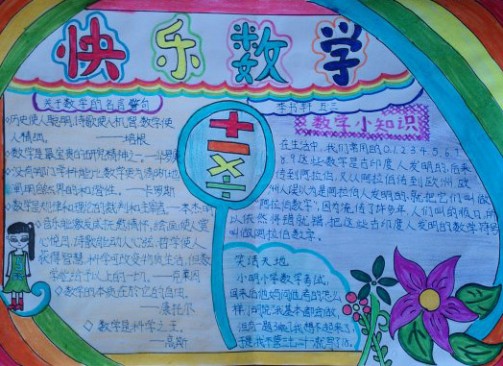 快乐数学
关于数学的名言警句
历史使人聪明,诗歌使人机智,数学使
人精细。 ——培根
数学是最宝贵的研究精神之一。——华罗庚
没有哪门学科能比数学更为清晰地
阐明自然界的和谐性。——卡罗斯
数学是规律和理论的裁判和主宰者。——本杰明
音乐能激发或抚慰情怀,绘画使人赏
心悦目,诗歌能动人心弦,哲学使人
获得智慧,科学可改变物质生活,但数
学能给予以上的一切。——克莱因
数学的本质在于它的自由。
——康托尔
数学是科学之王。
——高斯
+ − × ÷
数学小知识
在生活中,我们常用的0.1.2.3.4.5.6.7
8.9这些数字是古印度人发明的,后来
传到阿拉伯,又从阿拉伯传到欧洲,欧
洲人误以为是阿拉伯人发明的,就把它们叫做
“阿拉伯数字”,因为流传了许多年,人们叫的收口,所
以依然将错就错,把这些古印度人发明的数字符号
叫做阿拉伯数字。
笑话天地
小明小学数学考试,
回来后他妈问他考的怎么
样,他说基本都会做